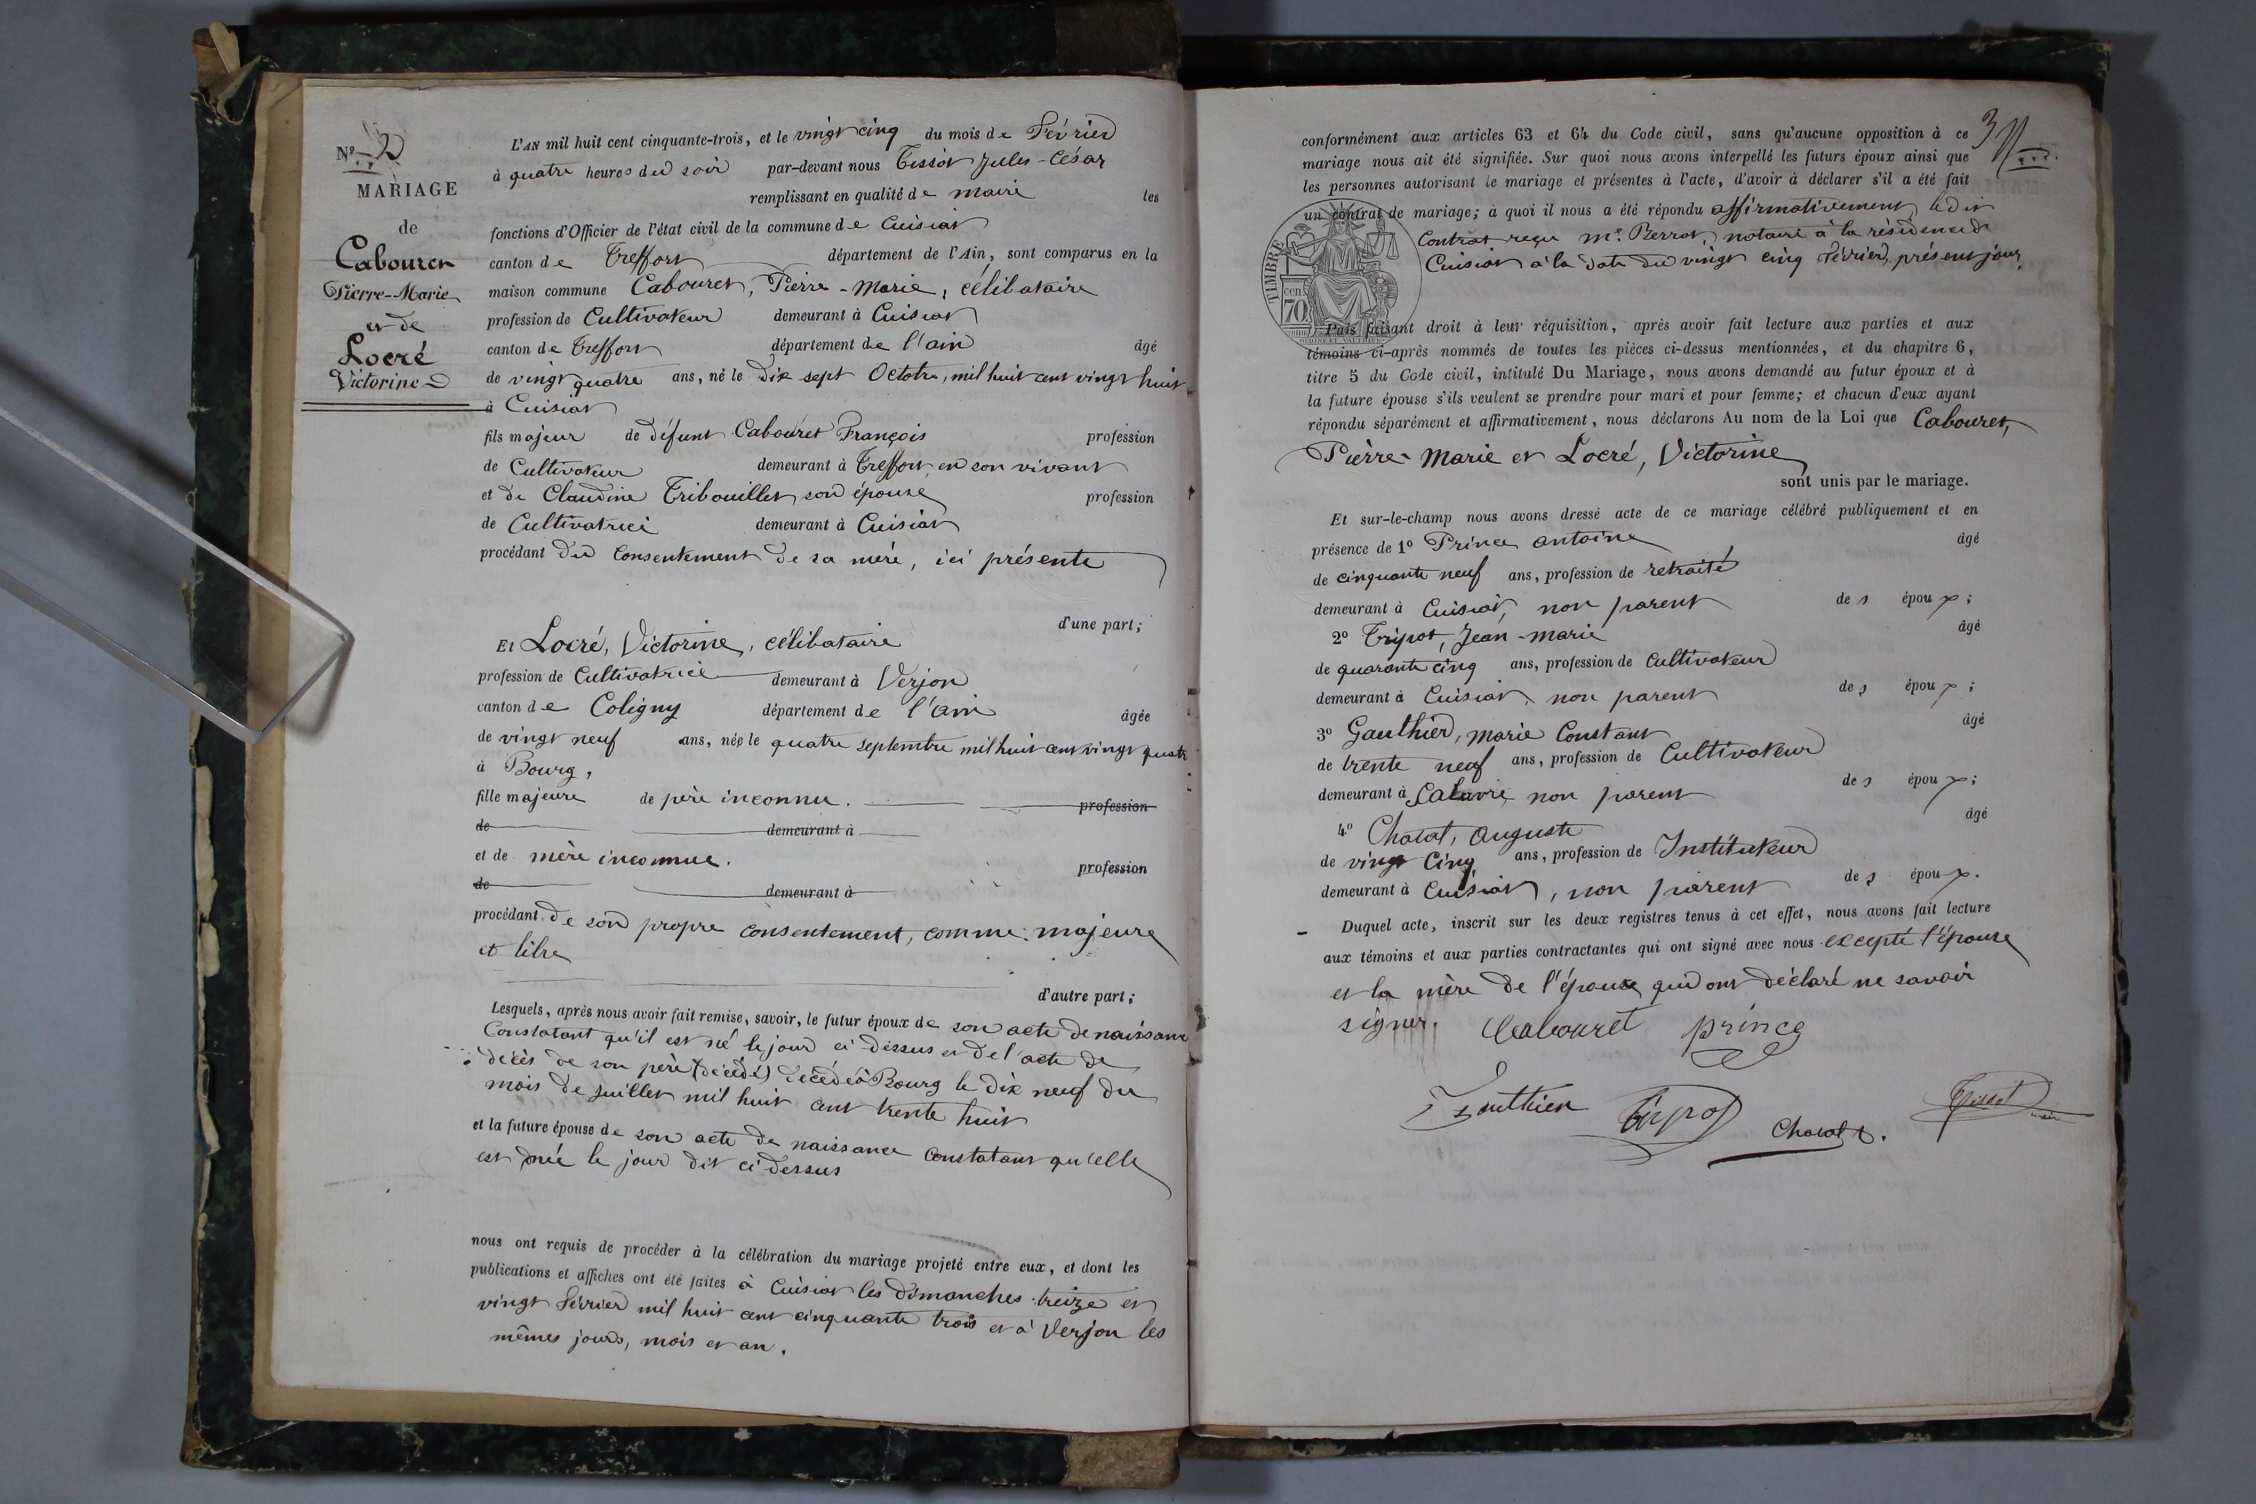 N° 2
MARIAGE
de
Cabouret
Pierre-Marie
et de
Locré
Victorine
L'AN mil huit cent cinquante-trois, et le vingt cinq du mois de Février
à quatre heures du soir par-devant nous Tissot Jules-César
remplissant en qualité de maire les
fonctions d'Officier de l'état civil de la commune de Cuisiat
canton de Treffort département de l'Ain, sont comparus en la
maison commune Cabouret, Pierre-Marie, célibataire
profession de Cultivateur demeurant à Cuisiat
canton de Treffort département de l'ain âgé
de vingt quatre ans, né le dix sept Octobre, mil huit cent vingt huit
à Cuisiat
fils majeur de défunt Cabouret François profession
de Cultivateur demeurant à Treffort en son vivant
et de Claudine Tribouillet son épouse profession
de Cultivatrice demeurant à Cuisiat
procédant du consentement de sa mère, ici présente
d'une part;
Et Locré, Victorine, célibataire
profession de Cultivatrice demeurant à Verjon
canton de Coligny département de l'ain âgée
de vingt neuf ans, née le quatre septembre mil huit cent vingt quatre
à Bourg,
fille majeure de père inconnu. profession
de demeurant à
et de mère inconnue. profession
de demeurant à
procédant de son propre consentement, comme majeure
et libre
d'autre part;
Lesquels, après nous avoir fait remise, savoir, le futur époux de son acte de naissance
Constatant qu'il est né le jour ci-dessus et de l'acte de
décès de son père (décédé) décédé à Bourg le dix neuf du
mois de Juillet mil huit cent trente huit
et la future épouse de son acte de naissance constatant qu'elle
est née le jour dit ci dessus
nous ont requis de procéder à la célébration du mariage projeté entre eux, et dont les
publications et affiches ont été faites à Cuisiat les dimanches treize et
vingt Février mil huit cent cinquante trois et à Verjon les
mêmes jours, mois et an.
3
conformément aux articles 63 et 64 du Code civil, sans qu'aucune opposition à ce
mariage nous ait été signifiée. Sur quoi nous avons interpellé les futurs époux ainsi que
les personnes autorisant le mariage et présentes à l'acte, d'avoir à déclarer s'il a été fait
un contrat de mariage; à quoi il nous a été répondu affirmativement, ledit
Contrat reçu Me. Perrot, notaire à la résidence de
Cuisiat à la date du vingt cinq Février, présent jour.
TIMBRE
70 cen.
Puis faisant droit à leur réquisition, après avoir fait lecture aux parties et aux
témoins ci-après nommés de toutes les pièces ci-dessus mentionnées, et du chapitre 6,
titre 5 du Code civil, intitulé Du Mariage, nous avons demandé au futur époux et à
la future épouse s'ils veulent se prendre pour mari et pour femme; et chacun d'eux ayant
répondu séparément et affirmativement, nous déclarons Au nom de la Loi que Cabouret,
Pierre-Marie et Locré, Victorine
sont unis par le mariage.
Et sur-le-champ nous avons dressé acte de ce mariage célébré publiquement et en
présence de 1° Prince antoine âgé
de cinquante neuf ans, profession de retraité
demeurant à Cuisiat, non parent des époux;
2° Tripot, Jean-marie âgé
de quarante cinq ans, profession de Cultivateur
demeurant à Cuisiat, non parent des époux;
3° Gauthier, marie Constant âgé
de trente neuf ans, profession de Cultivateur
demeurant à Salavre, non parent des époux;
4° Chatot, auguste âgé
de vingt cinq ans, profession de Instituteur
demeurant à Cuisiat, non parent des époux.
Duquel acte, inscrit sur les deux registres tenus à cet effet, nous avons fait lecture
aux témoins et aux parties contractantes qui ont signé avec nous excepté l'épouse
et la mère de l'époux qui ont déclaré ne savoir
signer. Cabouret prince
Gauthier Tripot Chatot Tissot